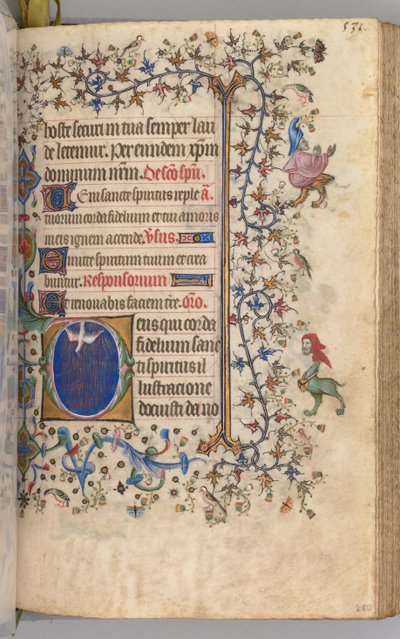 531.
hoste securi in tua semper lau
de letemur. Per eundem xp̄m
dominum nr̄m. De sc̄o spū.
Veni sancte spiritus reple tuorum
corda fidelium et tui amoris
in eis ignem accende. V̄sus.
Emitte spiritum tuum et crea
buntur. Responsorium
Et renovabis faciem tr̄e. Or̄o.
Deus qui corda
fidelium sanc
ti spiritus il
lustracione
docuisti da no
280